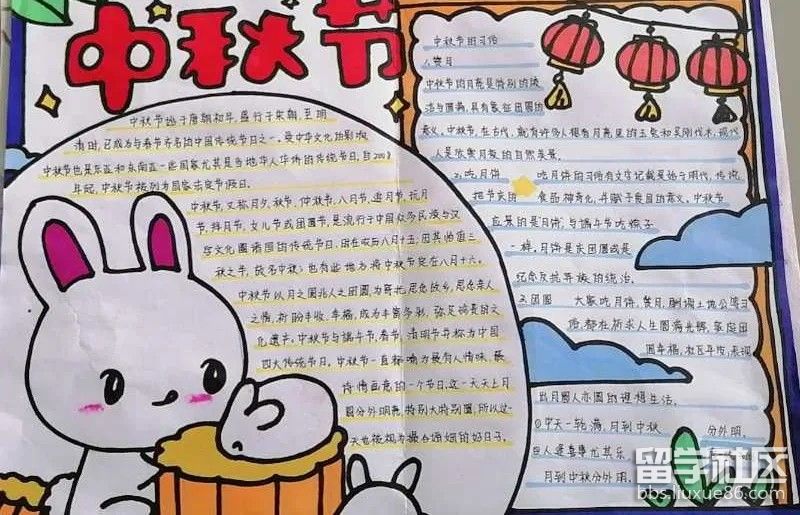 中秋节
中秋节始于唐朝初年,盛行于宋朝,至明
清时,已成为与春节齐名的中国传统节日之一。受中华文化的影响,
中秋节也是东亚和东南亚一些国家尤其是当地华人华侨的传统节日,自2008
年起,中秋节被列为国家法定节假日。
中秋节,又称月夕、秋节、仲秋节、八月节、追月节、玩月
节、拜月节、女儿节或团圆节,是流行于中国众多民族与汉
字文化圈诸国的传统节日,时在农历八月十五;因其恰值三
秋之半,故名中秋;也有些地方将中秋节定在八月十六。
中秋节以月之圆兆人之团圆,为寄托思念故乡,思念亲人
之情,祈盼丰收、幸福,成为丰富多彩、弥足珍贵的文
化遗产。中秋节与端午节、春节、清明节并称为中国
四大传统节日。中秋节一直都响为最有人情味、最
诗情画意的一个节日,这一天天上月
圆分外明亮,特别大特别圆,所以这一
天也被视为撮合通姻的好日子。
中秋节的习俗
1、赏月
中秋节的月亮是特别的皎
洁与圆满,具有象征团圆的
意义,中秋节,在古代,就有许多人想看月亮里的玉兔和吴刚伐木,现代
人是欣赏月救的自然美景。
2.吃月饼 吃月饼的习俗有文字记载是始于明代,传统
把节庆的 食品神奇化,并赋予食目的意义,中秋节
应景的是月饼,与端午节吃粽子
一样,月饼是庆团圆或是
纪念反抗异族的统治。
3.团圆 大家吃月饼,赏月,
俗,都在祈求人生圆满光辉,家庭团
圆幸福,社区平安,表现
出月圆人亦圆的理想生活。
中天一轮满,月到中秋 分外明。
月到中秋分外明。
留学社区
bbs.liuxue86.com